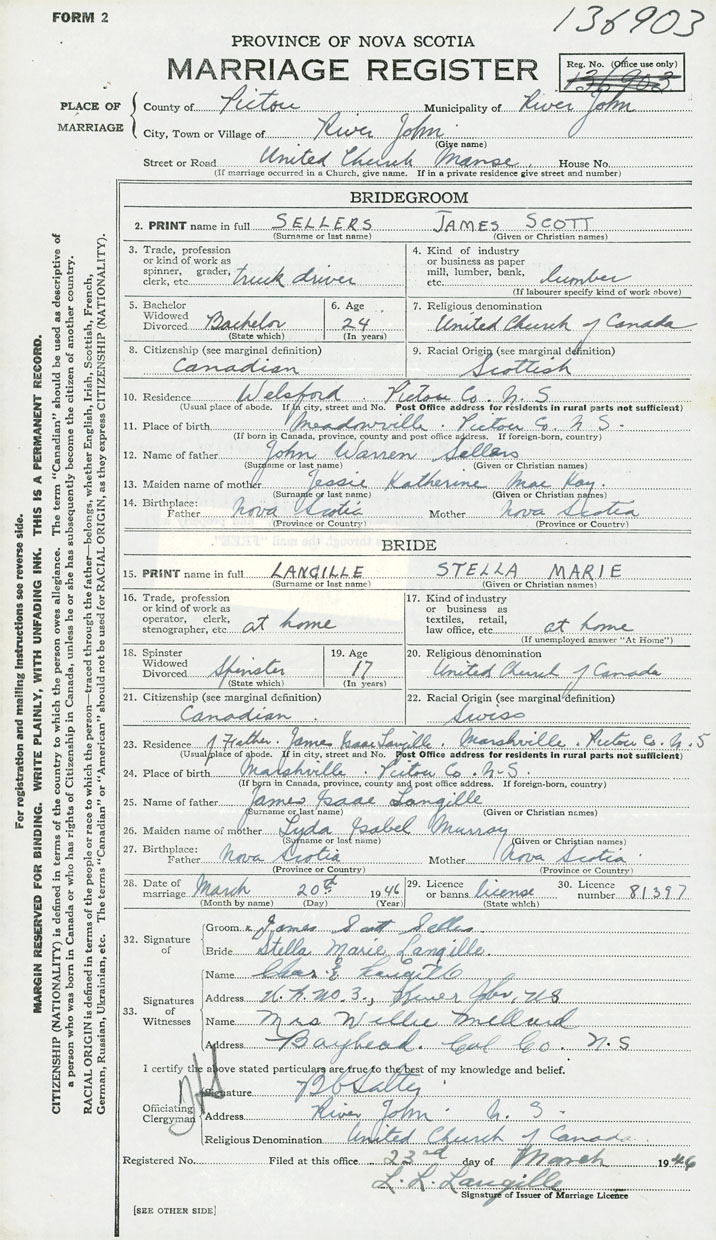 FORM 2
136903
PROVINCE OF NOVA SCOTIA
MARRIAGE REGISTER
Reg. No. (Office use only)
136903
PLACE OF MARRIAGE
County of Pictou Municipality of River John
City, Town or Village of River John
(Give name)
Street or Road United Church Manse. House No.
(If marriage occurred in a Church, give name. If in a private residence give street and number)
BRIDEGROOM
2. PRINT name in full SELLERS JAMES SCOTT
(Surname or last name) (Given or Christian names)
3. Trade, profession or kind of work as spinner, grader, clerk, etc. truck driver
4. Kind of industry or business as paper mill, lumber, bank, etc. lumber
(If labourer specify kind of work above)
5. Bachelor Widowed Divorced Bachelor
(State which)
6. Age 24
(In years)
7. Religious denomination
United Church of Canada
8. Citizenship (see marginal definition)
Canadian
9. Racial Origin (see marginal definition)
Scottish
10. Residence Welsford. Pictou Co. N. S
(Usual place of abode. If in city, street and No. Post Office address for residents in rural parts not sufficient)
11. Place of birth Meadowville. Pictou Co. N. S.
(If born in Canada, province, county and post office address. If foreign-born, country)
12. Name of father John Warren Sellers
(Surname or last name) (Given or Christian names)
13. Maiden name of mother Jessie Katherine Mac Kay.
(Surname or last name) (Given or Christian names)
14. Birthplace: Father Nova Scotia Mother Nova Scotia
(Province or Country) (Province or Country)
BRIDE
15. PRINT name in full LANGILLE STELLA MARIE
(Surname or last name) (Given or Christian names)
16. Trade, profession or kind of work as operator, clerk, stenographer, etc. at home
17. Kind of industry or business as textiles, retail, law office, etc. at home
(If unemployed answer "At Home")
18. Spinster Widowed Divorced Spinster
(State which)
19. Age 17
(In years)
20. Religious denomination
United Church of Canada
21. Citizenship (see marginal definition)
Canadian.
22. Racial Origin (see marginal definition)
Swiss
23. Residence of Father. James Isaac Langille. Marshville. Pictou Co. N. S
(Usual place of abode. If in city, street and No. Post Office address for residents in rural parts not sufficient)
24. Place of birth Marshville. Pictou Co. N. S.
(If born in Canada, province, county and post office address. If foreign-born, country)
25. Name of father James Isaac Langille
(Surname or last name) (Given or Christian names)
26. Maiden name of mother Lyda Isabel Murray
(Surname or last name) (Given or Christian names)
27. Birthplace: Father Nova Scotia Mother Nova Scotia
(Province or Country) (Province or Country)
28. Date of marriage March 20th 1946
(Month by name) (Day) (Year)
29. Licence or banns license
(State which)
30. Licence number 81397
32. Signature of
Groom James Scott Sellers
Bride Stella Marie Langille
33. Signatures of Witnesses
Name Chas E Langille
Address R. R. No. 3., River John, N S
Name Mrs Willie Millard
Address Bayhead. Col Co. N. S
I certify the above stated particulars are true to the best of my knowledge and belief.
Officiating Clergyman
Signature
Address River John N. S.
Religious Denomination United Church of Canada
Registered No. Filed at this office 23rd day of March 1946
L. L. Langille
Signature of Issuer of Marriage Licence
[SEE OTHER SIDE]
For registration and mailing instructions see reverse side.
MARGIN RESERVED FOR BINDING. WRITE PLAINLY, WITH UNFADING INK. THIS IS A PERMANENT RECORD.
CITIZENSHIP (NATIONALITY) is defined in terms of the country to which the person owes allegiance. The term "Canadian" should be used as descriptive of
a person who was born in Canada or who has rights of Citizenship in Canada, unless he or she has subsequently become the citizen of another country.
RACIAL ORIGIN is defined in terms of the people or race to which the person—traced through the father—belongs, whether English, Irish, Scottish, French,
German, Russian, Ukrainian, etc. The terms "Canadian" or "American" should not be used for RACIAL ORIGIN, as they express CITIZENSHIP (NATIONALITY).